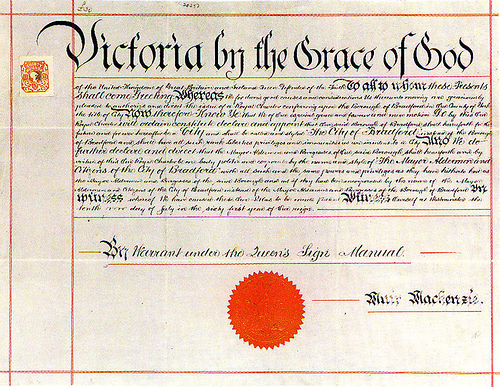 Victoria by the Grace of God
of the United Kingdom of Great Britain and Ireland Queen Defender of the Faith To all to whom these Presents
shall come Greeting Whereas We for divers good causes and considerations Us thereunto moving are graciously
pleased to authorise and direct the issue of a Royal Charter conferring upon the Borough of Bradford in the County of York
the title of City Now therefore Know Ye that We of Our especial grace and favour and mere motion Do by this Our
Royal Charter will ordain constitute declare and appoint that Our said Borough of Bradford shall henceforth
future and forever hereafter be a City and shall be called and styled "The City of Bradford" instead of the Borough
of Bradford and shall have all such rank liberties privileges and immunities as are incident to a City And We do
further declare and direct that the Mayor Aldermen and Burgesses of Our said Borough shall henceforth by
virtue of this Our Royal Charter be one body politic and corporate by the name and style of "The Mayor Aldermen and
Citizens of the City of Bradford" with all such and the same powers and privileges as they have hitherto had as
the Mayor Aldermen and Burgesses of the said Borough
Aldermen and Citizens of the City of Bradford instead of the Mayor Aldermen and Burgesses of the Borough of Bradford In
Witness whereof We have caused these Our Letters to be made Patent Witness Ourself at Westminster the
tenth day of July in the sixty first year of Our Reign.
By Warrant under the Queen's Sign Manual.
Muir Mackenzie.